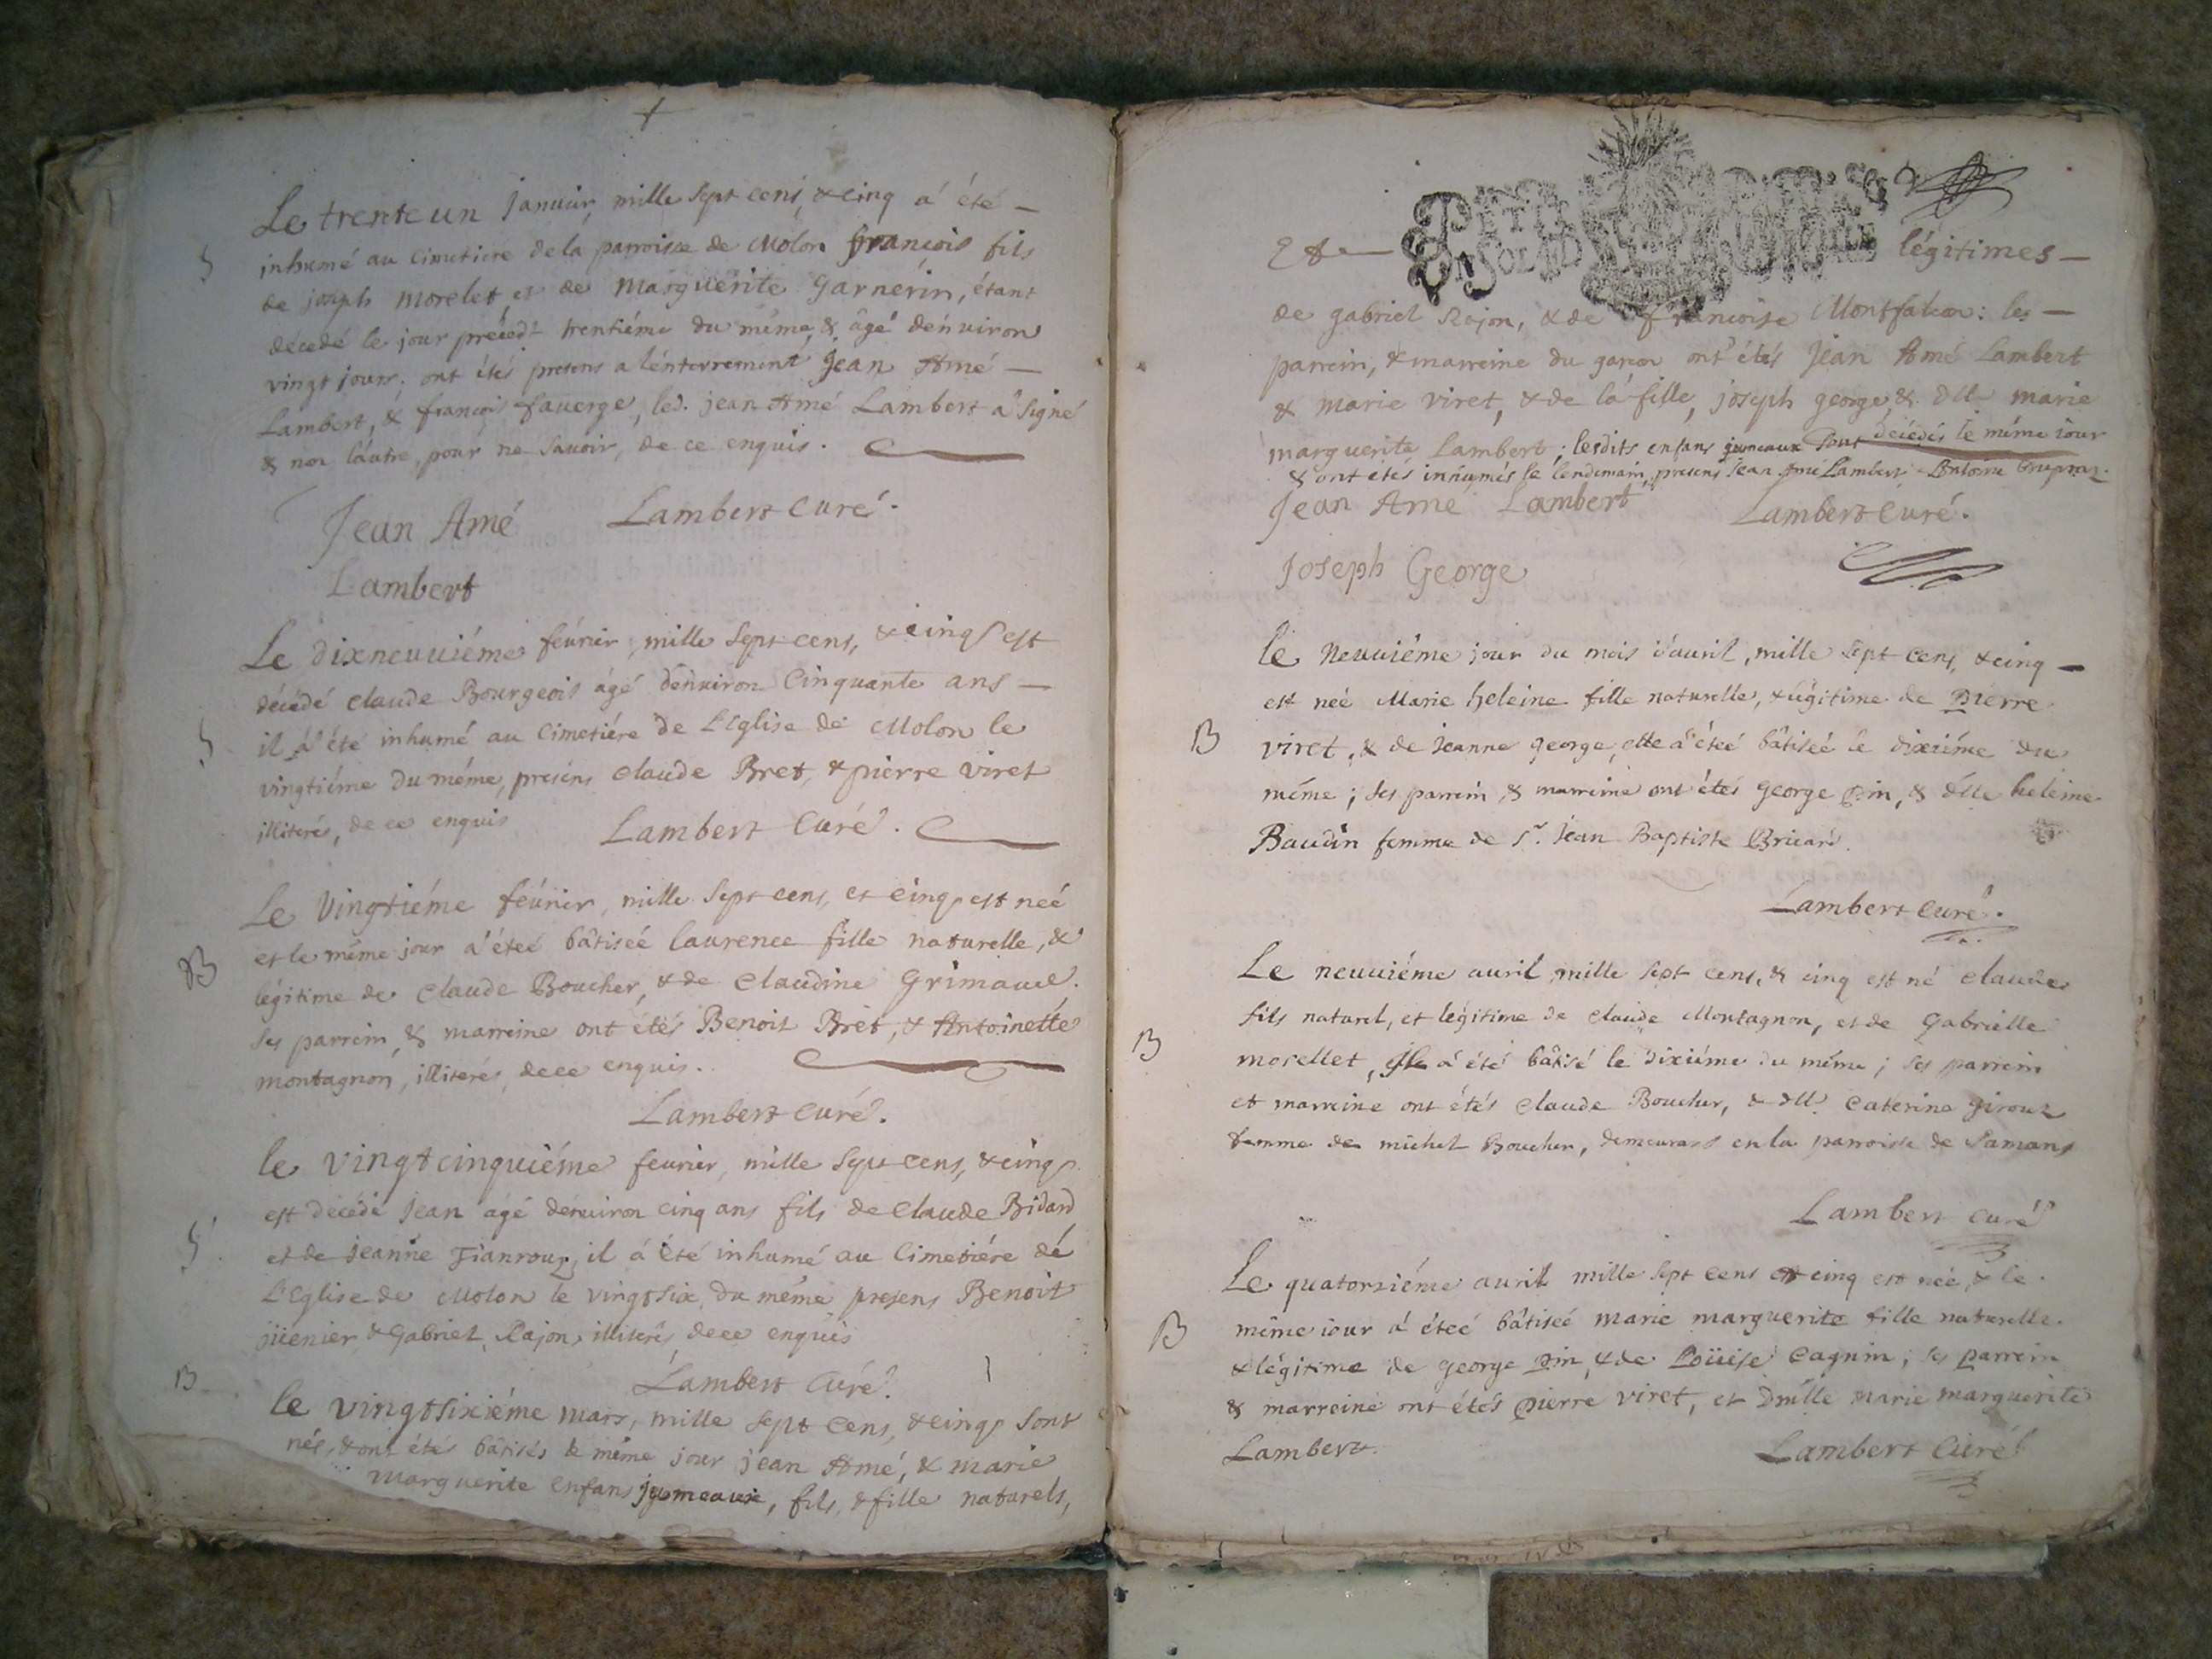 Le trente un Januier, mille Sept cens, & cinq a' été —
S
inhumé au Cimetiere de la parroisse de Molon françois fils
de joseph Morelet, et de Marguerite Garnérin, étant
décedé le jour précedt trentiéme du même, & âgé denuiron
vingt jours. ont étés presens a l'énterrement Jean Amé —
Lambert, & françois fauerge, led. jean Amé Lambert a' Signé
& non láutre, pour ne Sauoir, de ce enquis.
Jean Amé Lambert Curé.
Lambert
Le dixneuuiéme féurier, mille Sept cens, & cinq est
décédé Claude Bourgeois âgé denuiron Cinquante ans —
S
il a' été inhumé au Cimetiére de L'Eglise de Molon le
vingtiéme du même, presens Claude Bret, & pierre viret
illiterés, de ce enquis Lambert Curé.
Le Vingtiéme féurier, mille Sept cens, et cinq est neé
et le même jour a' éteé bâtiseé laurence fille naturelle, &
B
légitime de Claude Boucher, & de Claudine Grimaud.
Ses parrein, & marreine ont étés Benoit Bret, & Antoinette
montagnon, illiterés de ce enquis.
Lambert Curé.
le vingtcinquiéme feurier, mille Sept cens, & cinq
est décédé Jean agé denuiron cinq ans fils de Claude Bidard
S
et de jeanne Tianroux, il a' été inhumé au Cimetiére dé
L'Eglise de Molon le vingtsix du même presens Benoit
jüenier & Gabriel Rajon, illiterés de ce enquis
Lambert Curé.
B
le vingtsixiéme mars, mille sept cens, & cinq Sont
nés, & ont étés bâtisés le même jour jean Amé, & marie
marguerite enfans jumeaux, fils, & fille naturels,
& légitimes —
de gabriel Rajon, & de francoise Montfalcon: les —
parrein, & marreine du garçon ont étés Jean Amé Lambert
& Marie viret, & de lá fille, joseph george, & dlle marie
marguerite Lambert; lesdits enfans jumeaux sont decedés le même iour
& ont étés inhumés le lendemain, presens Jean Amé Lambert Antoine
Jean Ame Lambert Lambert Curé.
Joseph George
le Neuuiéme jour du mois d'auril, mille Sept cens, & cinq —
est neé Marie heleine fille naturelle, & légitime de Pierre
B
viret, & de Jeanne george, elle a' éteé bâtiseé le dixiéme du
même; Ses parrein & marreine ont étés george pin, & dlle heleine
Baudin femme de Sr. Jean Baptiste Bricard.
Lambert Curé.
Le neuuiéme auril mille sept cens, & cinq est né Claude
fils naturel, et légitime de Claude Montagnon, et de Gabrielle
B
morellet, Il a' été bâtisé le dixiéme du même; Ses parrein
et marreine ont étés Claude Boucher, & dlle Caterine Giroux
femme de michel Boucher, demeurans en la parroisse de Samans
Lambert Curé
Le quatorziéme auril mille sept cens et cinq est neé & le
B
même iour a' éteé bâtiseé marie marguerite fille naturelle
& légitime de george pin & de Loüise Cagnin; Ses parrein
& marreine ont étés pierre viret, et dmlle marie marguerite
Lambert. Lambert Curé